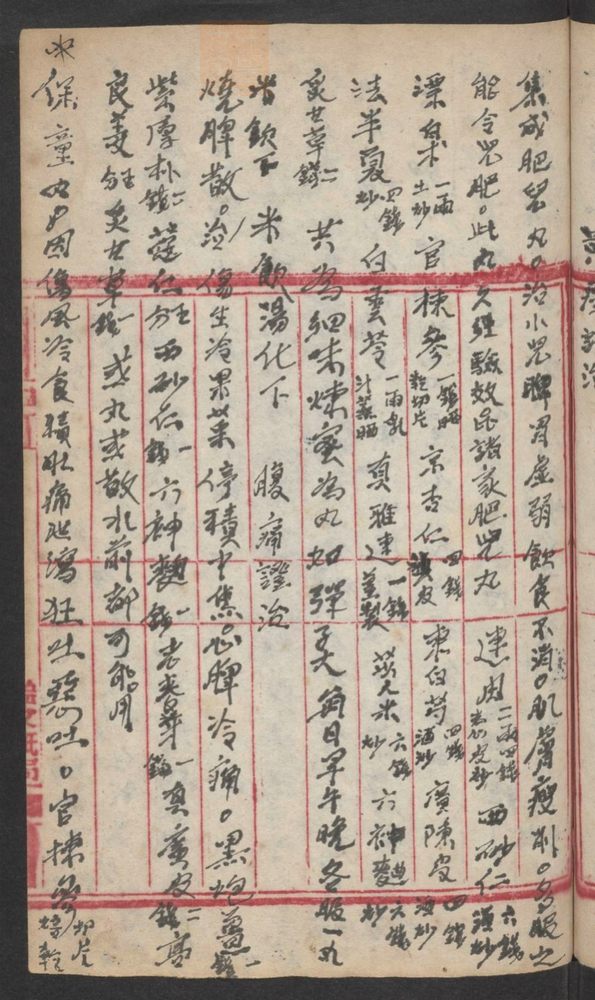 集成肥兒丸。治小兒脾胃虛弱飲食不消。肌膚瘦削。多服之
能令兒肥。此丸久經驗效凡諸家肥兒丸 建用 二兩四錢 老心皮炒 西砂仁 六錢 酒炒
漂白朮 一兩 土炒 官揀參 一錢 晒乾切片 京杏仁 四錢 皮 東白芍 四錢 酒炒 廣陳皮 四錢 酒炒
法半夏 四錢 炒 白雲苓 一兩 乳汁蒸晒 真雅連 一錢 薑製 苡米 六錢 炒 六神麯 六錢 炒
炙甘草 二錢 共為細末煉蜜為丸如彈子大 每日早午晚各服一丸
米飲下 米飲湯化下 腹痛證治
燒脾散。治傷生冷果菜停積中焦。心脾冷痛。黑炮薑 一錢
紫厚朴 二錢 仁 西砂仁 一錢 六神麯 一錢 老麥芽 一錢 真廣皮 二錢 高
良姜 炙甘草 錢 或丸或散 水煎都可能用
保童丸 因傷風冷食積肚痛泄瀉狂吐惡吐。官揀參 切片 焙乾